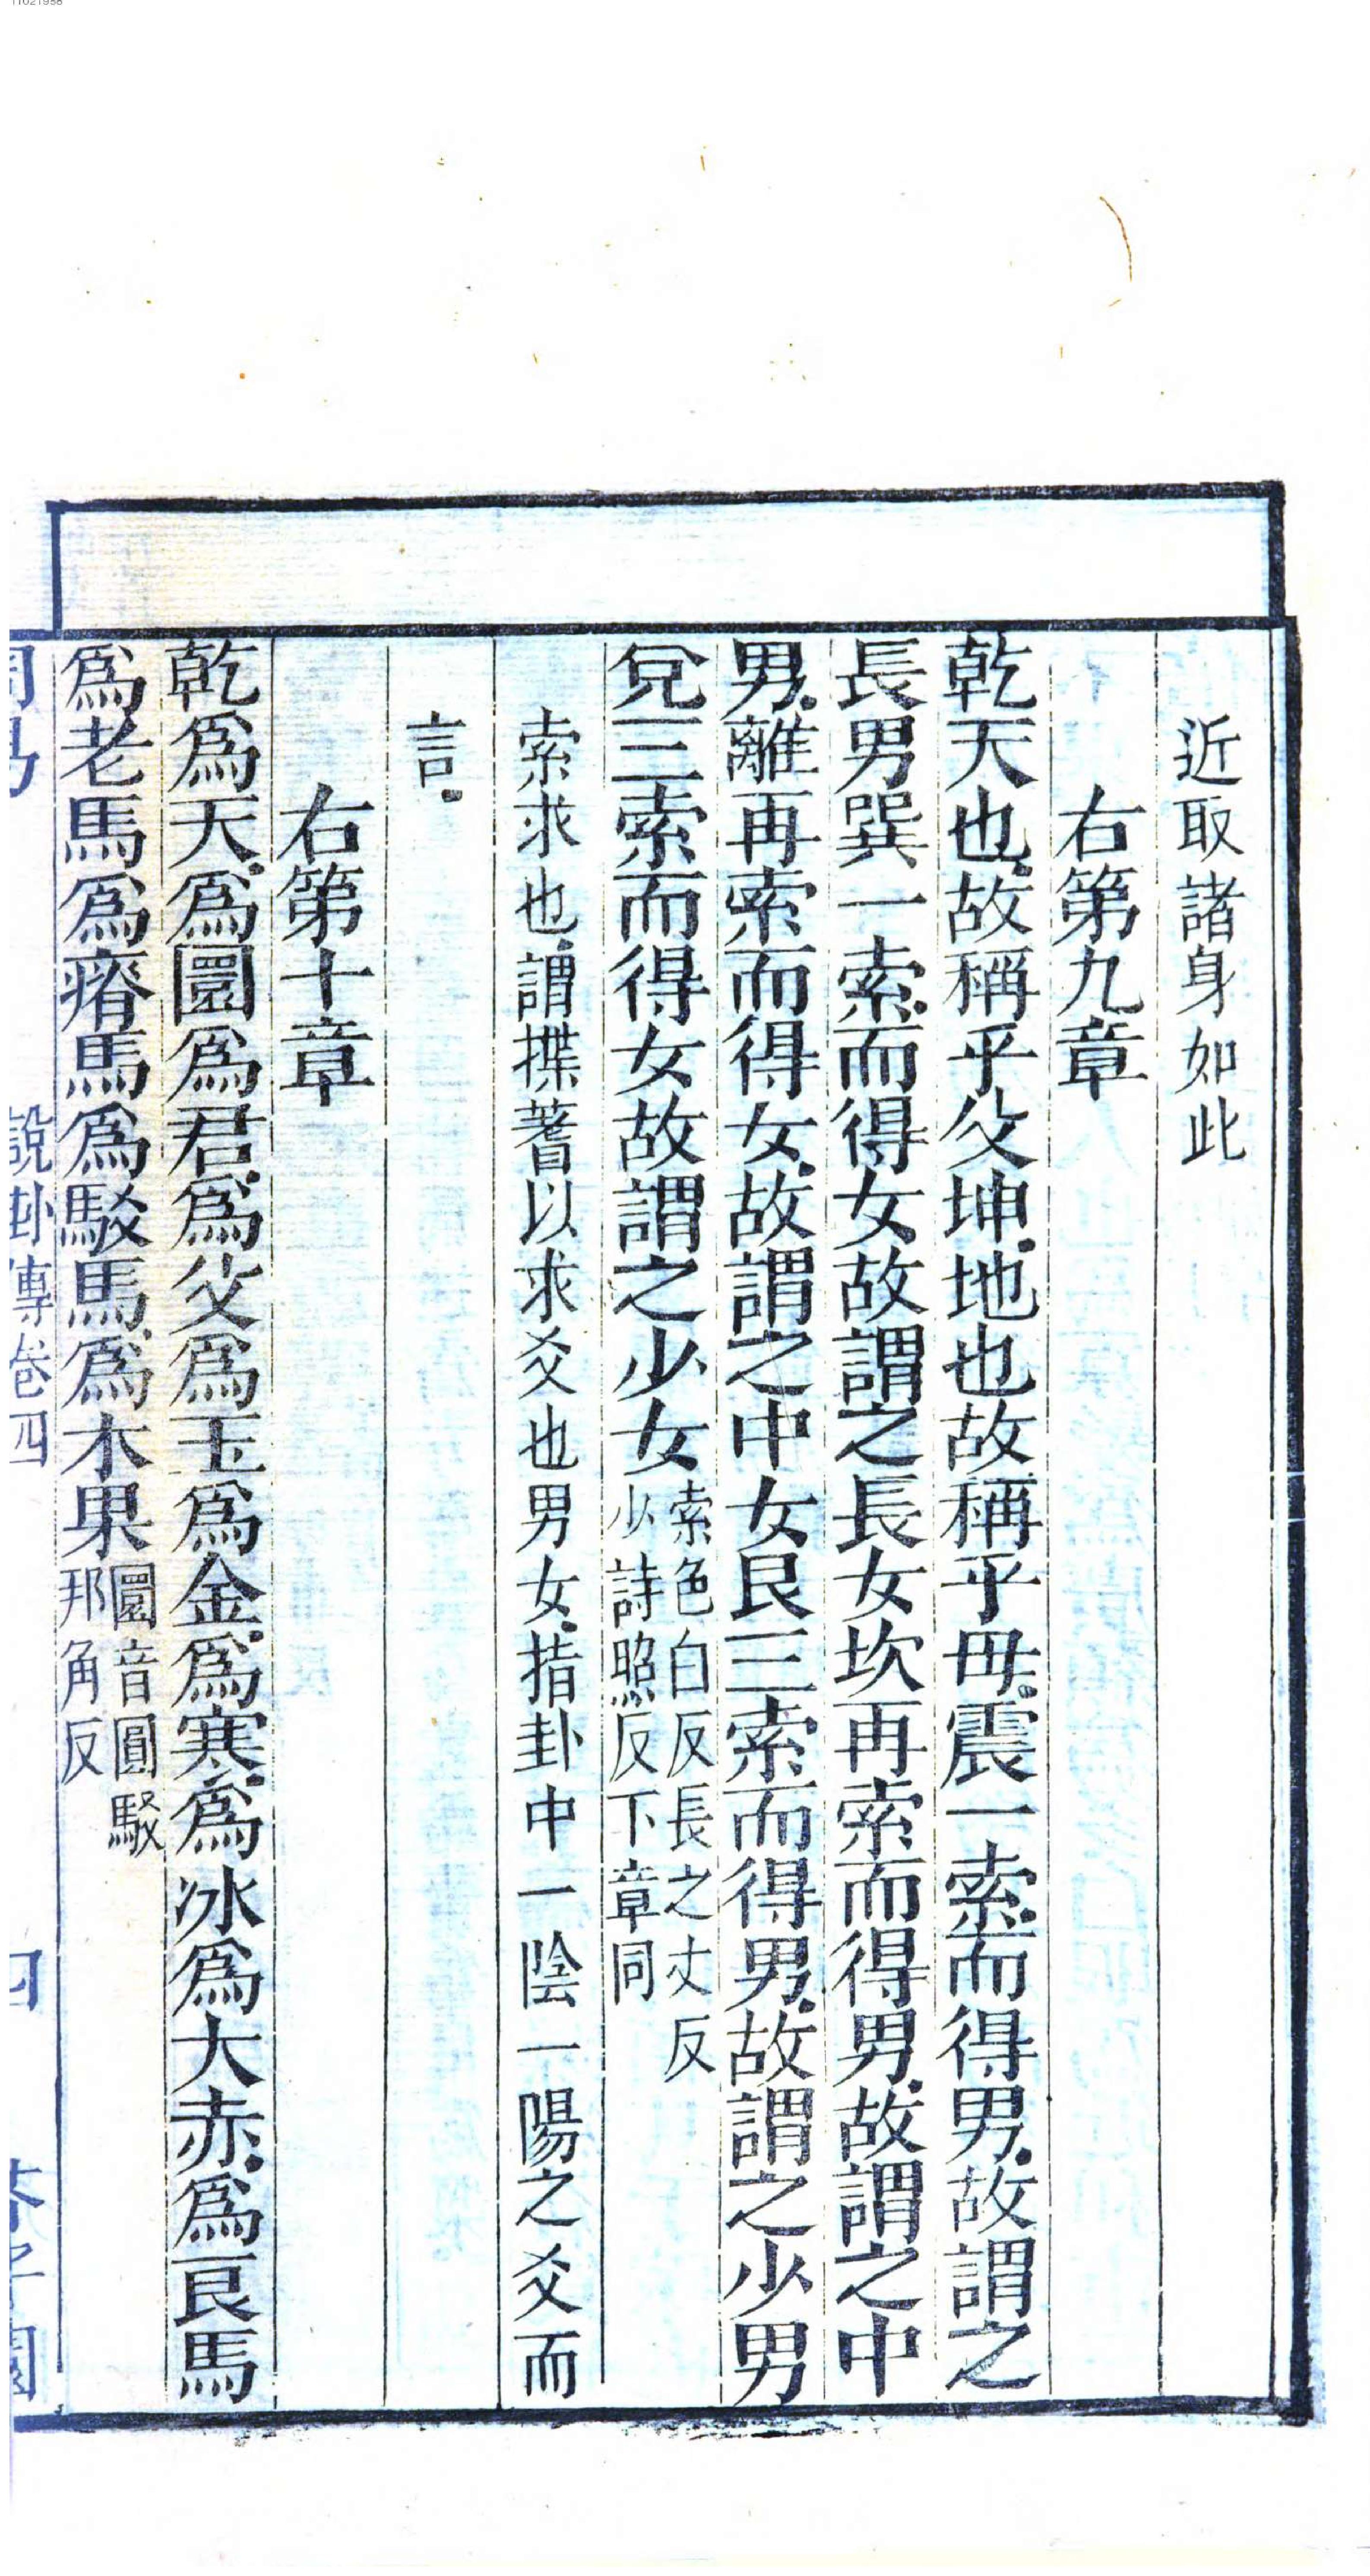 近取諸身如此
右第九章
乾天也故稱乎父坤地也故稱乎母震一索而得男故謂之
長男巽一索而得女故謂之長女坎再索而得男故謂之中
男離再索而得女故謂之中女艮三索而得男故謂之少男
兌三索而得女故謂之少女索色白反長之丈反
少詩照反下章同
索求也謂揲蓍以求爻也男女指卦中一陰一陽之爻而
言
右第十章
乾爲天爲圜爲君爲父爲玉爲金爲寒爲冰爲大赤爲良馬
爲老馬爲瘠馬爲駁馬爲木果圜音圓駁
邦角反
說卦傳卷四
四
11021958